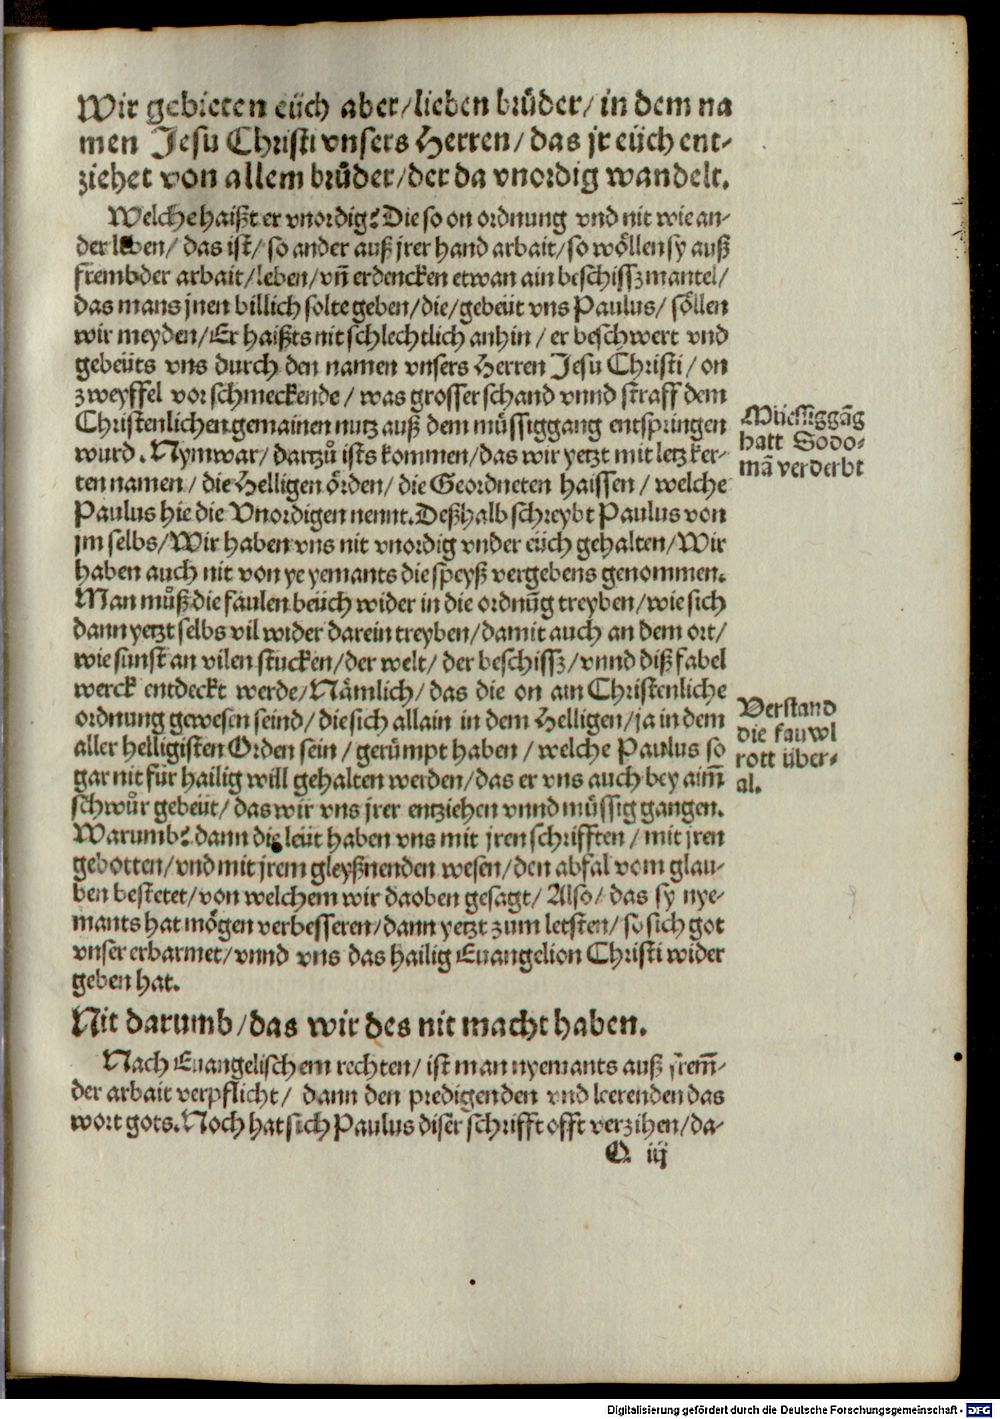 Wir gebieten eüch aber/lieben brůder/in dem na
men Jesu Christi vnsers Herren/das jr eüch ent-
ziehet von allem brůder/der da vnordig wandelt.
Welche haißt er vnordig? Die so on ordnung vnd nit wie an-
der leben/das ist/so ander auß jrer hand arbait/so wöllen sy auß
frembder arbait/leben/vn̄ erdencken etwan ain beschissz mantel/
das mans jnen billich solte geben/die/gebeüt vns Paulus/söllen
wir meyden/Er haißts nit schlechtlich anhin/er beschwert vnd
gebeüts vns durch den namen vnsers Herren Jesu Christi/on
zweyffel vor schmeckende/was grosser schand vnnd straff dem
Christenlichen gemainen nutz auß dem müssiggang entspringen
wurd. Nym war/dartzů ists kommen/das wir yetzt mit letz ker-
ten namen/die Helligen örden/die Geordneten haissen/welche
Paulus hie die Vnordigen nennt. Deßhalb schreybt Paulus von
jm selbs/Wir haben vns nit vnordig vnder eüch gehalten/Wir
haben auch nit von ye yemants die speyß vergebens genommen.
Man můß die faulen beüch wider in die ordnūg treyben/wie sich
dann yetzt selbs vil wider darein treyben/damit auch an dem ort/
wie sunst an vilen stucken/der welt/der beschissz/vnnd diß fabel
werck entdeckt werde/Nämlich/das die on ain Christenliche
ordnung gewesen seind/die sich allain in dem Helligen/ja in dem
aller helligisten Orden sein/gerümpt haben/welche Paulus so
gar nit für hailig will gehalten werden/das er vns auch bey aim̄
schwůr gebeüt/das wir vns jrer entziehen vnnd müssig gangen.
Warumb? dann die leüt haben vns mit jren schrifften/mit jren
gebotten/vnd mit jrem gleyßnenden wesen/den abfal vom glau-
ben bestetet/von welchem wir daoben gesagt/Also/das sy nye-
mants hat mögen verbesseren/dann yetzt zum letsten/so sich got
vnser erbarmet/vnnd vns das hailig Euangelion Christi wider
geben hat.
Nit darumb/das wir des nit macht haben.
Nach Euangelischem rechten/ist man nyemants auß frem̄-
der arbait verpflicht/dann den predigenden vnd leerenden das
wort gots. Noch hat sich Paulus diser schrifft offt verzihen/da-
Q iij
Müessiggāg
hatt Sodo-
mā verderbt
Verstand
die fauwl
rott über-
al.
Digitalisierung gefördert durch die Deutsche Forschungsgemeinschaft - DFG